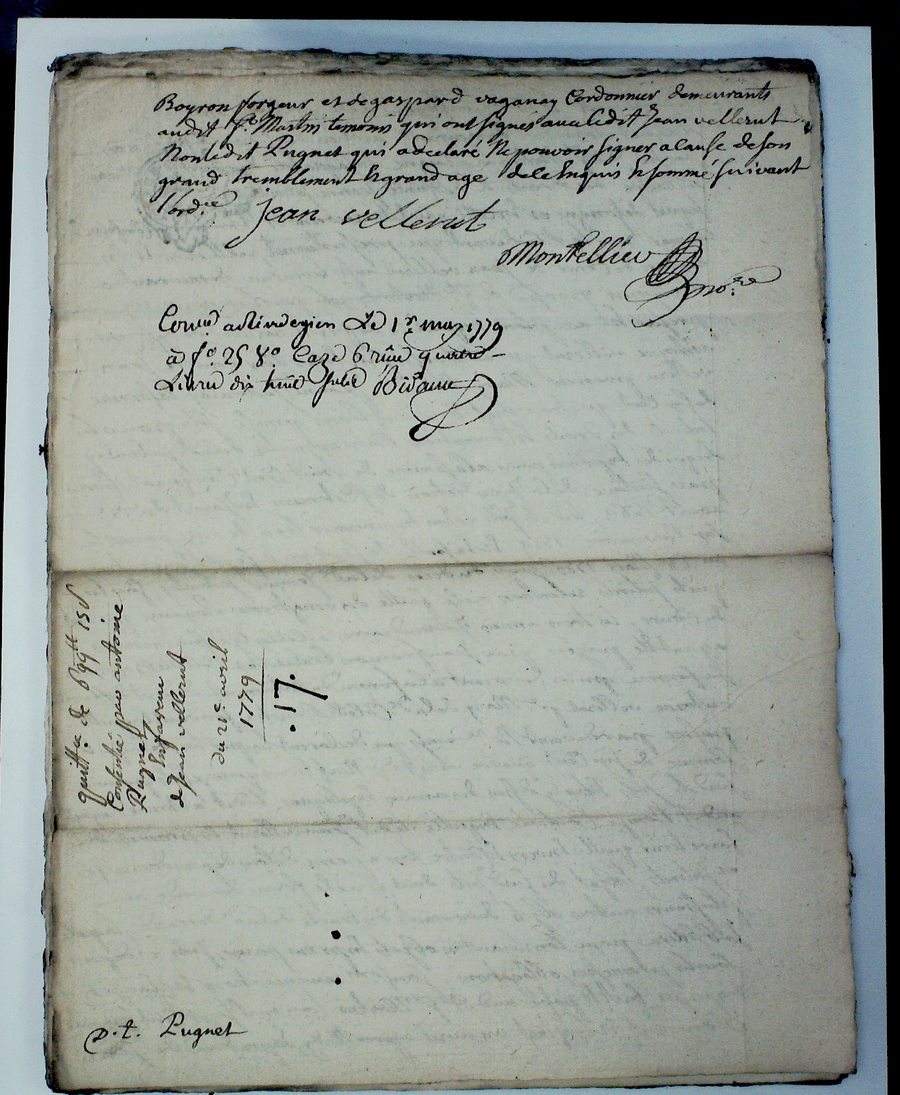 Boyron forgeur et de gaspard vaganay Cordonnier demeurants
audit St. Martin temoins qui ont signés avec ledit Jean vellerut
Non ledit Pugnet qui a declaré Ne pouvoir signer a cause de son
grand tremblement & grand age de ce Enquis & sommé suivant
l'ordce
Jean vellerut
Montellier
nore
Conlé a Rivedegier Le 1r. may 1779
a fo. 25 Vo. Caze 6 reçu quatre
Livres dix huit sols Bidaux
quittce de 699tt 15s
Consentie par antoine
Pugnet
En faveur
de Jean vellerut
du 21e. avril
1779
.17.
p.t. Pugnet